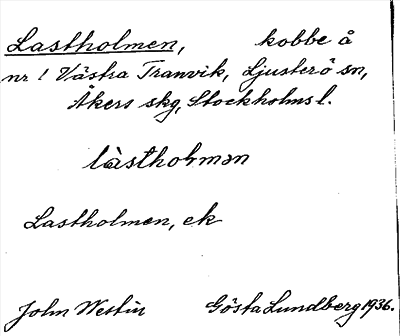 Lastholmen, kobbe å
nr 1 Västra Tranvik, Ljusterö sn,
Åkers skg, Stockholms l.
làsthoɫmən
Lastholmen, ek
John Westin Gösta Lundberg 1936.